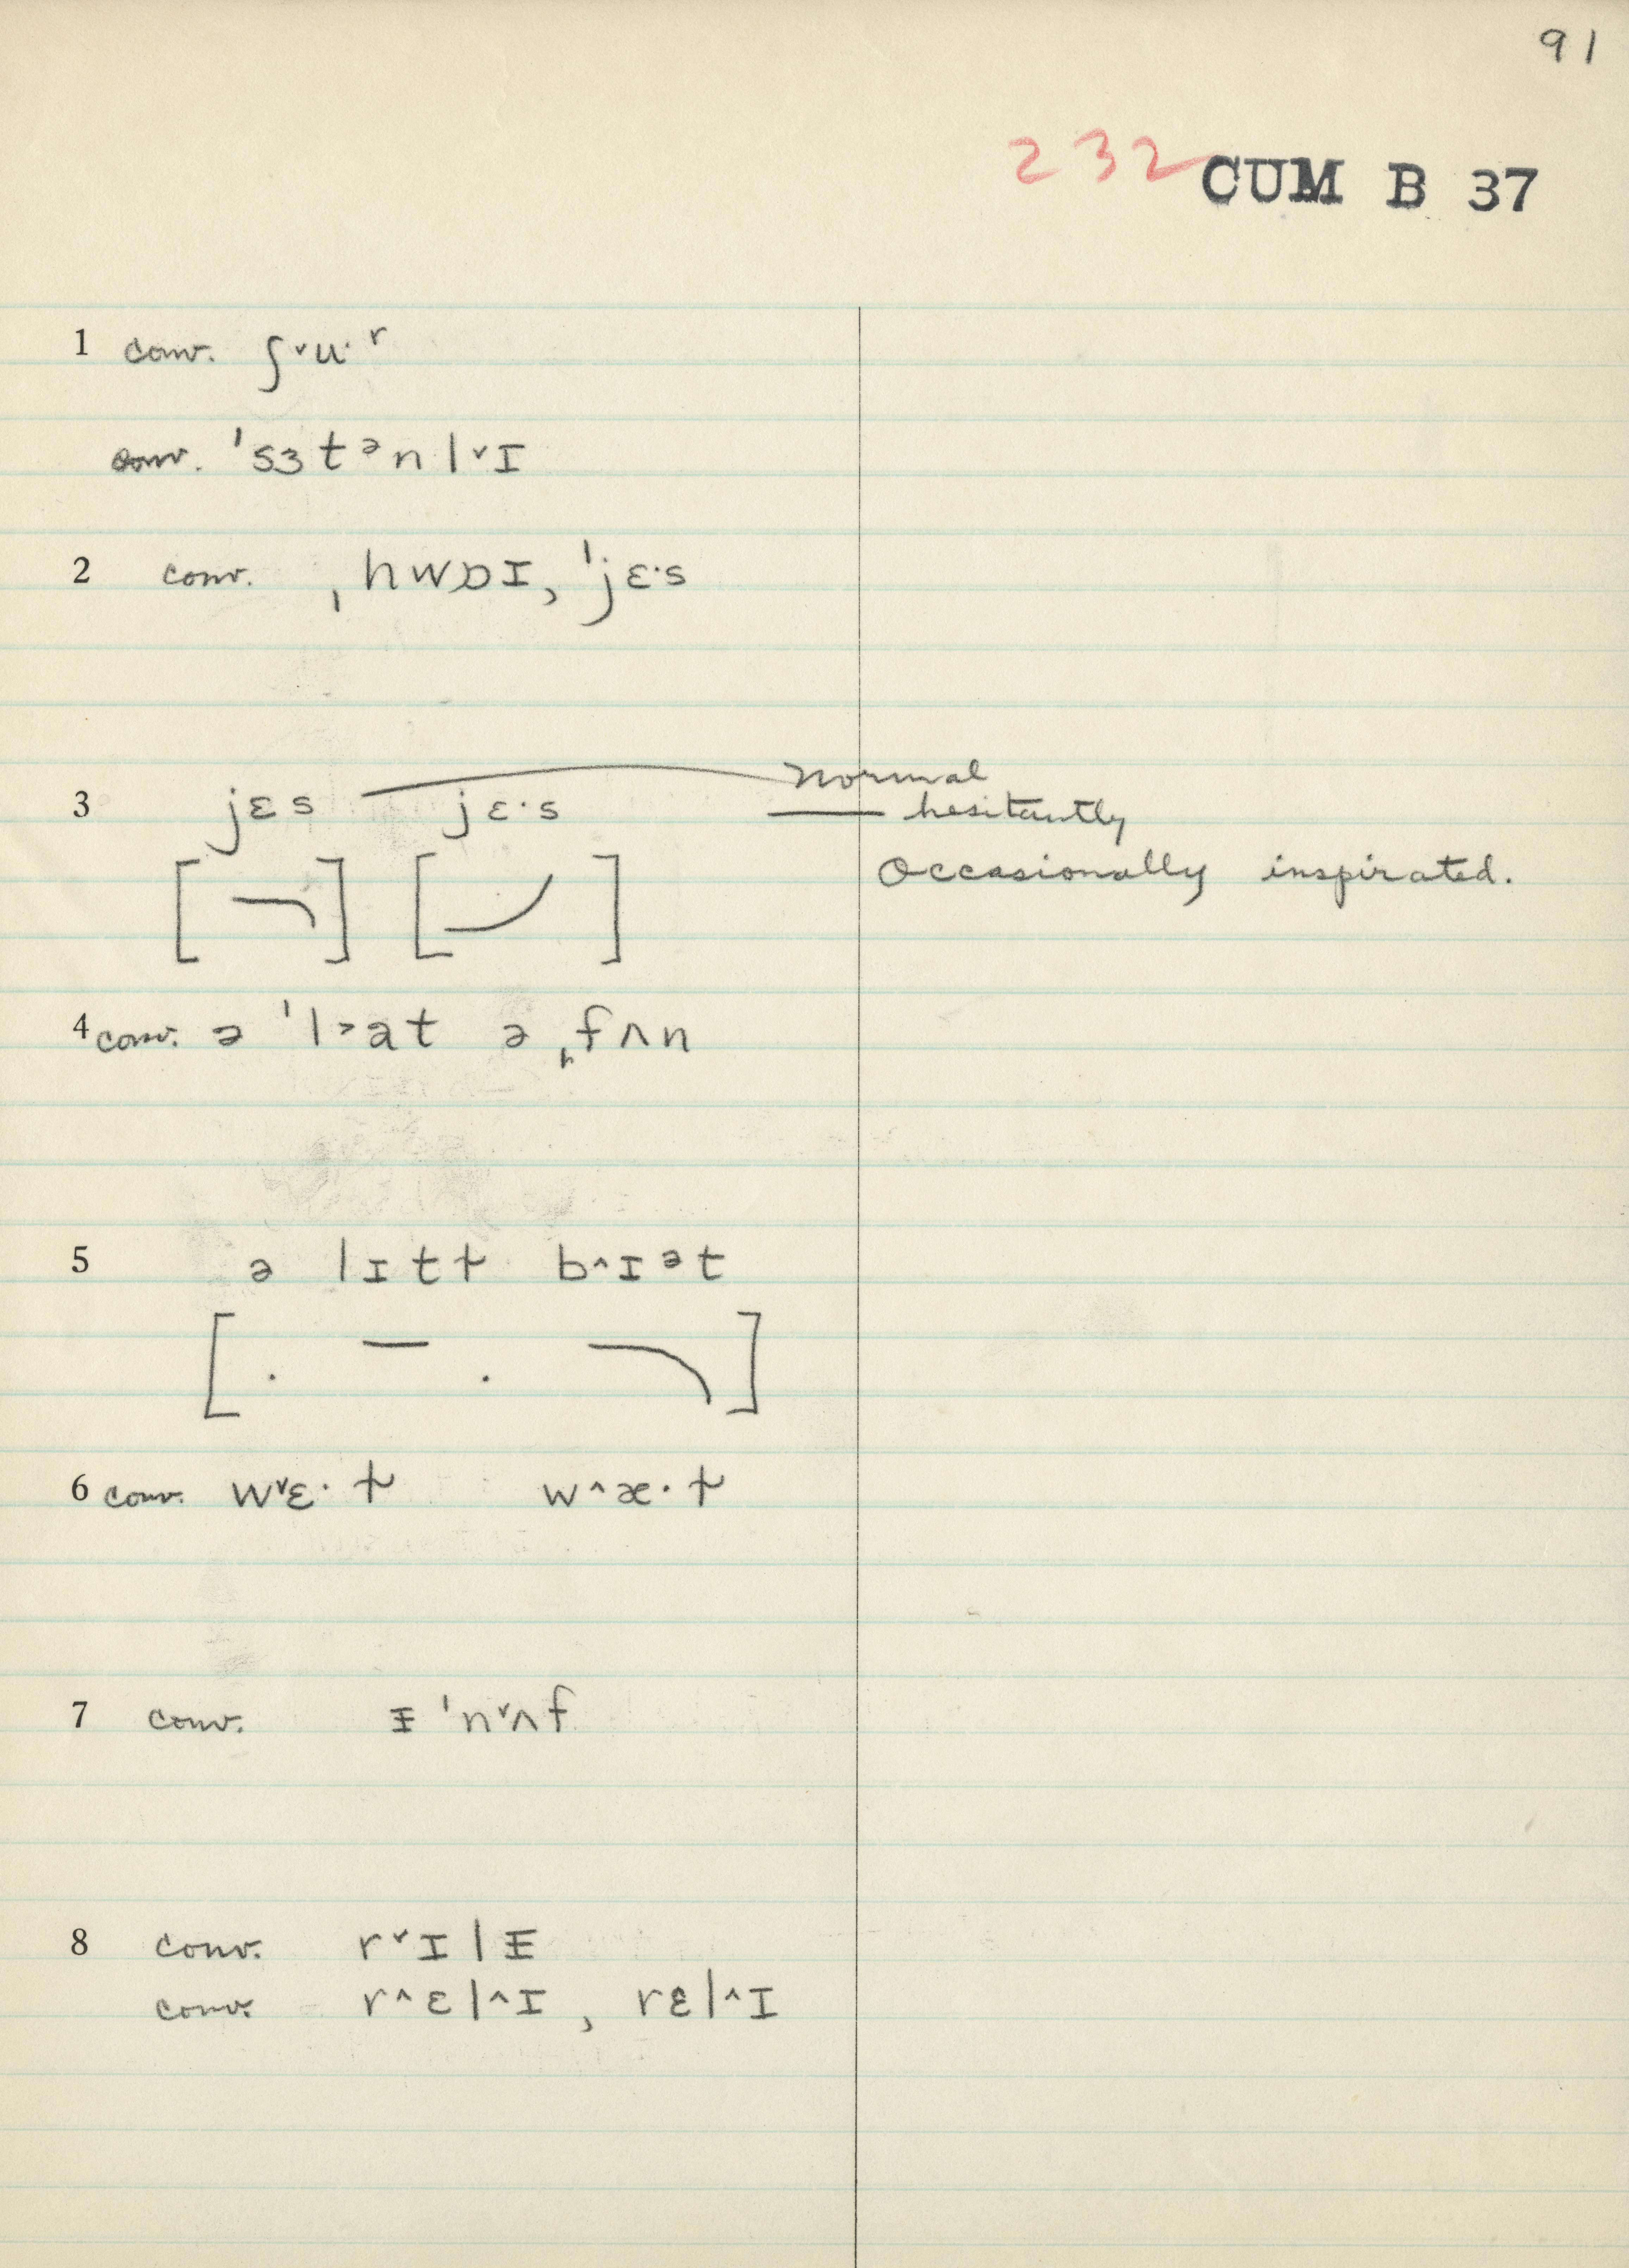 91
232 CUM B 37
1 conv. ʃ˅u·ʳ
conv. ˈsɜtᵊnl˅ɪ
2 conv. ˌhwɒɪ, ˈjɛ·s
3 jɛs jɛ·s normal
— hesitantly
Occasionally inspirated.
4 conv. ə ˈl˃at ə ˌfʌn
5 ə lɪtɫ b^ɪᵊt
6 conv. w˅ɛ·ɫ w^æ·ɫ
7 conv. ᵻ ˈn˅ʌf
8 conv. r˅ɪlᵻ
conv. r^ɛl^ɪ, rɛl^ɪ